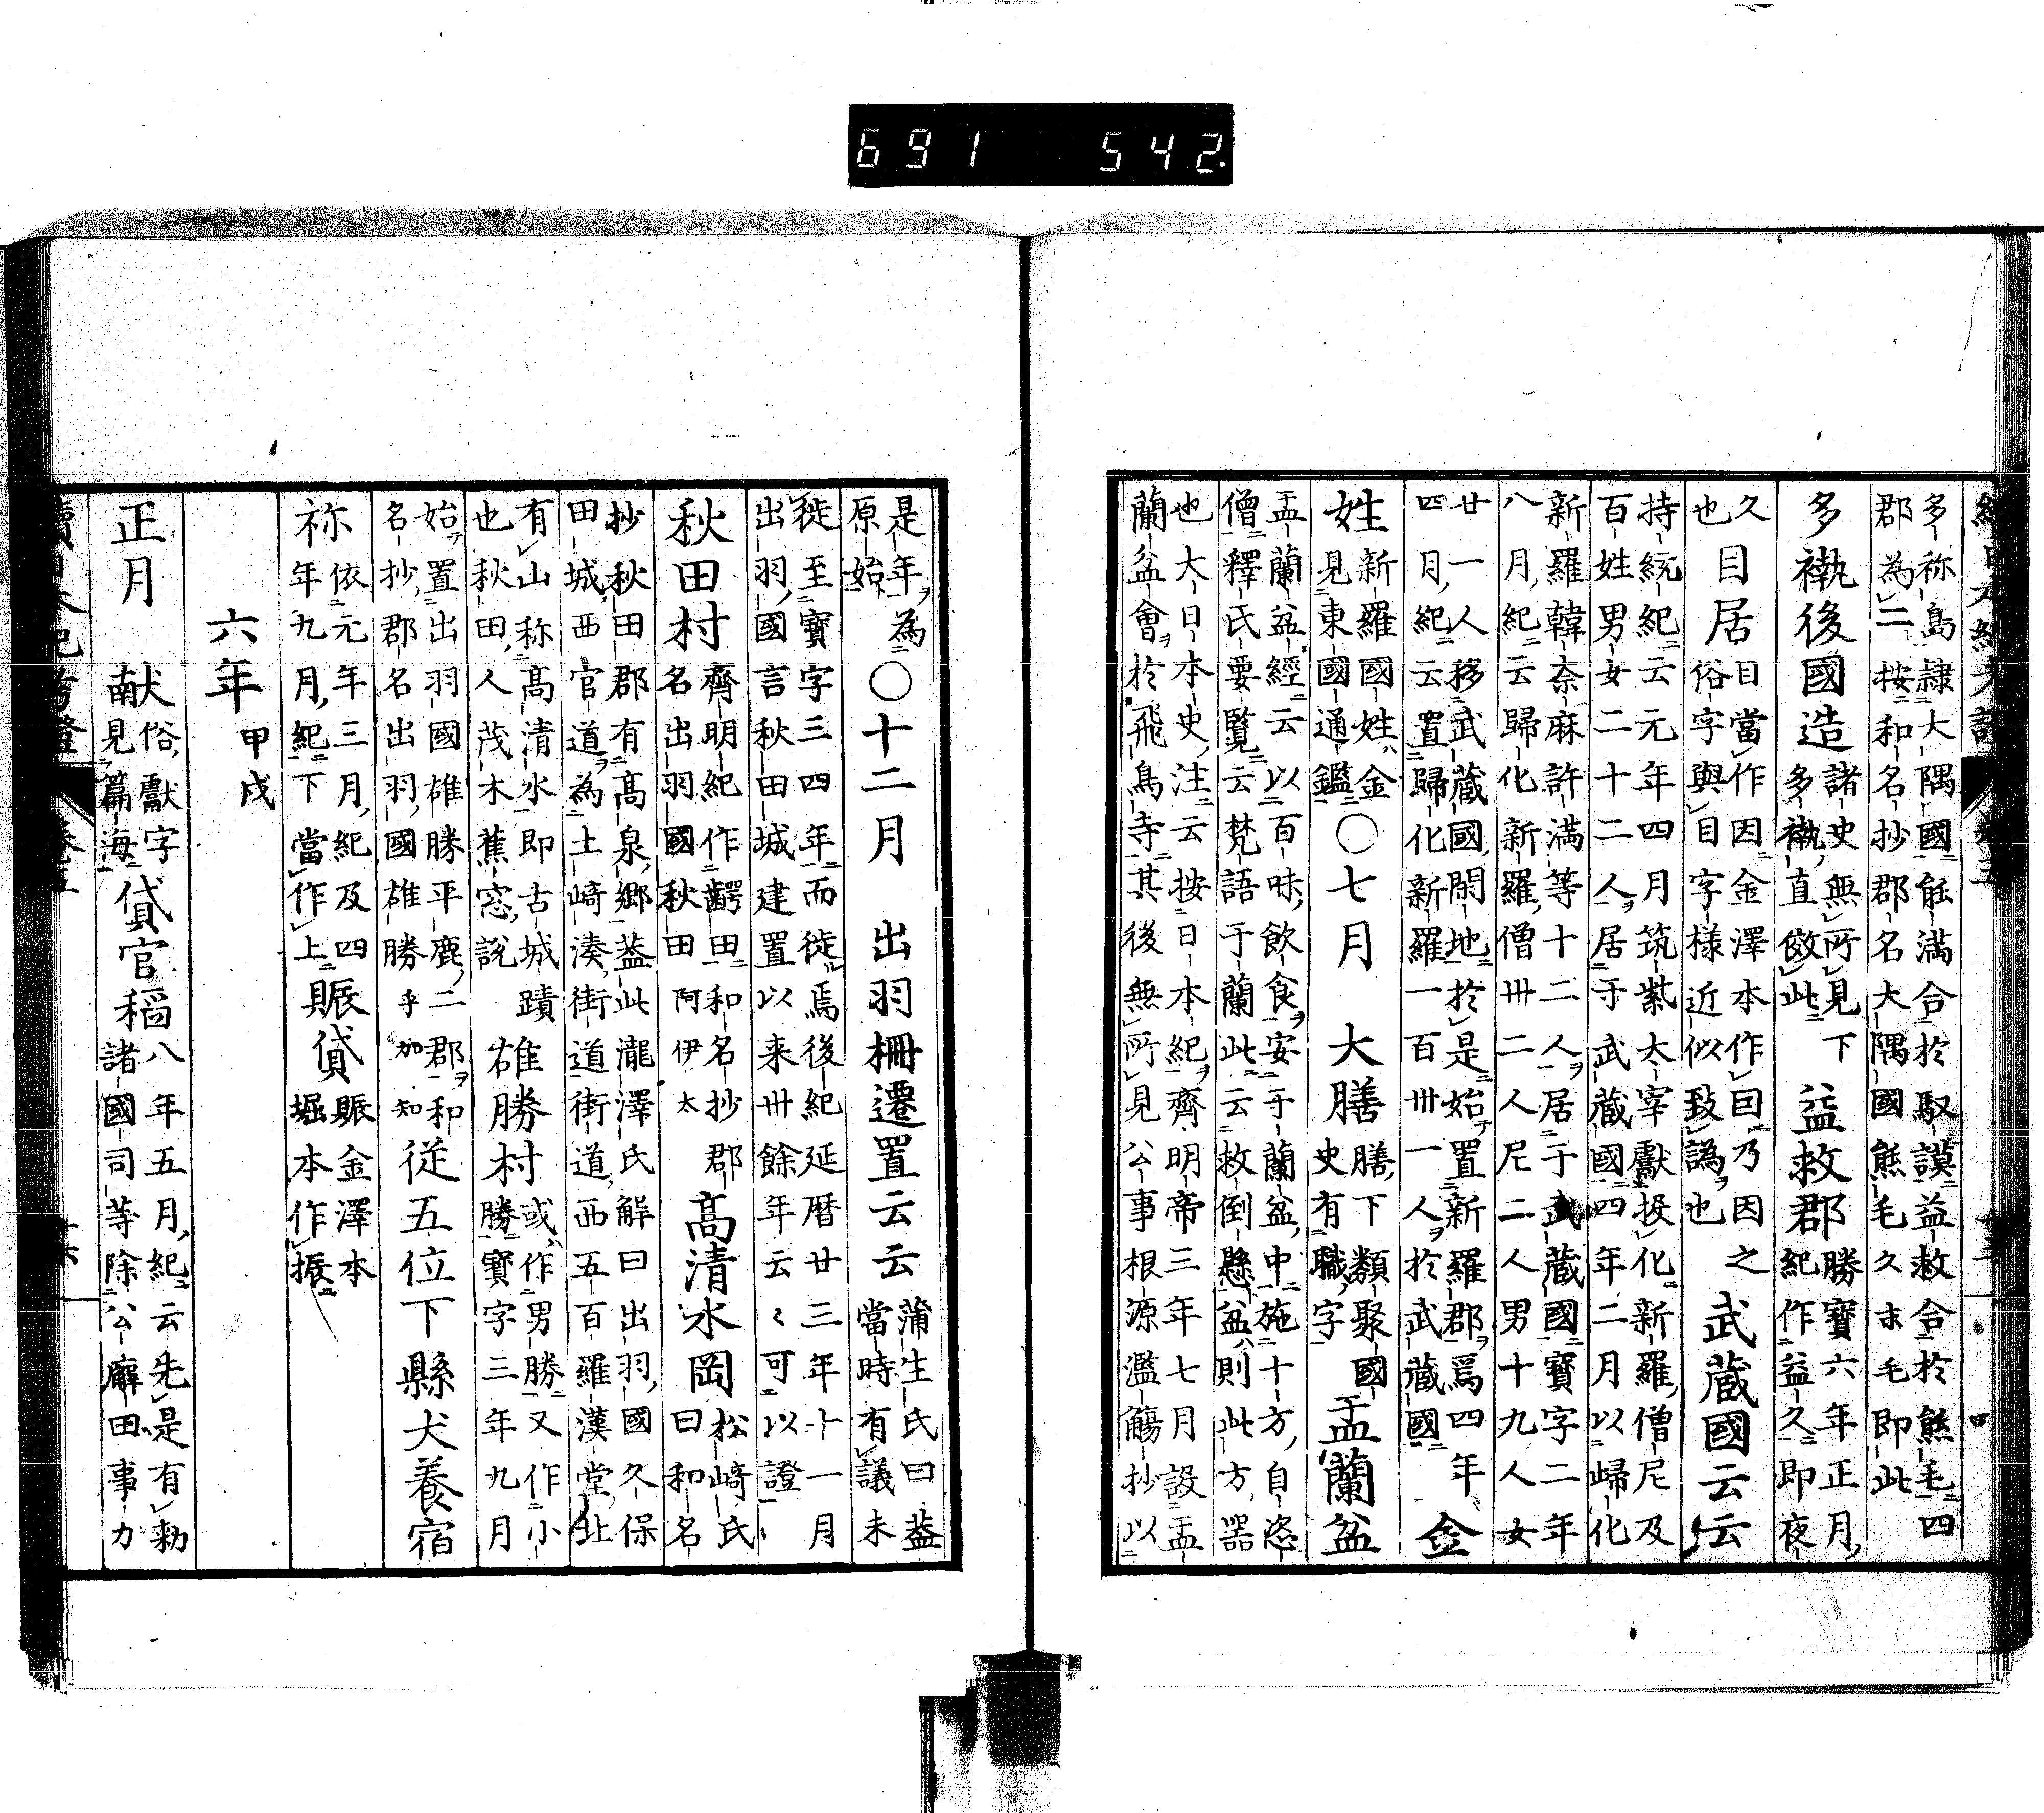 691 542
多祢島隷大隅國能滿合於馭謨益救合於熊毛四
郡為二按和名抄郡名大隅國熊毛久末毛即此
多褹後國造 諸史無所見下
多褹直倣此 益救郡 勝寶六年正月
紀作益久即夜
久
也 目居 目當作因金澤本作曰乃因之
俗字與目字様近似致譌也 武蔵國云云
持統紀云元年四月筑紫太宰獻投化新羅僧尼及
百姓男女二十二人居于武蔵國四年二月以歸化
新羅韓奈麻許滿等十二人居于武蔵國寶字二年
八月紀云歸化新羅僧卅二人尼二人男十九人女
廿一人移武蔵國閑地於是始置新羅郡焉四年
四月紀云置歸化新羅一百卅一人於武蔵國 金
姓 新羅國姓金
見東國通鑑 ○七月 大膳 膳下類聚國
史有職字 盂蘭盆
盂蘭盆經云以百味飲食安于蘭盆中施十方自恣
僧釋氏要覽云梵語于蘭此云救倒懸盆則此方器
也大日本史注云按日本紀齊明帝三年七月設盂
蘭盆會於飛鳥寺其後無所見公事根源濫觴抄以
是年為
原始 ○十二月 出羽柵遷置云云 蒲生氏曰蓋
當時有議未
徙至寶字三四年而徙焉後紀延暦廿三年十一月
出羽國言秋田城建置以来卅餘年云々可以證
秋田村 齊明紀作齶田和名抄郡
名出羽國秋田阿伊太 髙清水岡 松﨑氏
曰和名
抄秋田郡有髙泉郷蓋此瀧澤氏解曰出羽國久保
田城西官道為土﨑湊街道街道西五百羅漢堂北
有山称髙清水即古城蹟
也秋田人茂木蕉窓説 雄勝村 或作男勝又作小
勝寶字三年九月
始置出羽國雄勝平鹿二郡和
名抄郡名出羽國雄勝乎加知 従五位下縣犬養宿
祢 依元年三月紀及四
年九月紀下當作上 賑貸 賑金澤本
堀本作振
六年 甲戌
正月 献 俗獻字
見篇海 貸官稲 八年五月紀云先是有勅
諸國司等除公廨田事力